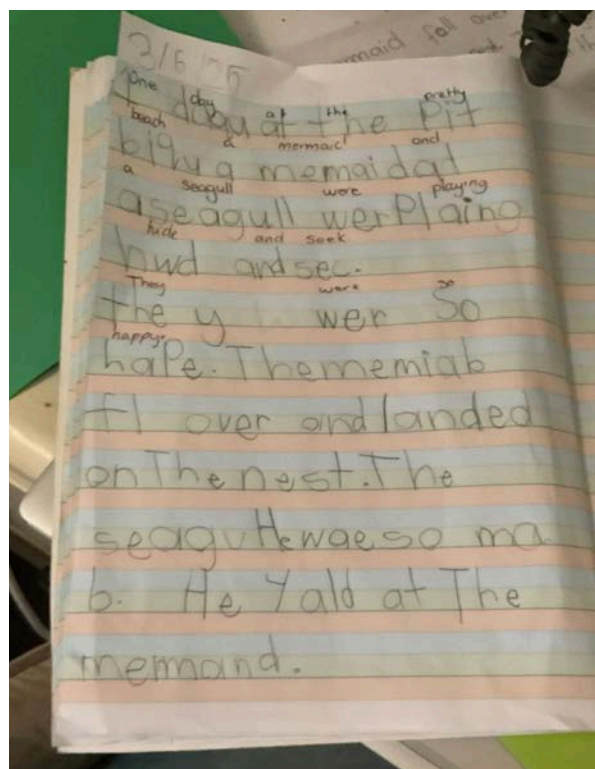 3/6/25
maid fall over
One day at the pretty
at the Pit
beach a mermaid and
a memaidad
a seagull were playing
aseagull werPlaing
hide and seek
hwd andsec.
They were so
the y wer So
happy.
haPe. Thememiab
fl over andlanded
onThenest. The
seagull He wae so ma
b. He Yald at The
memand.